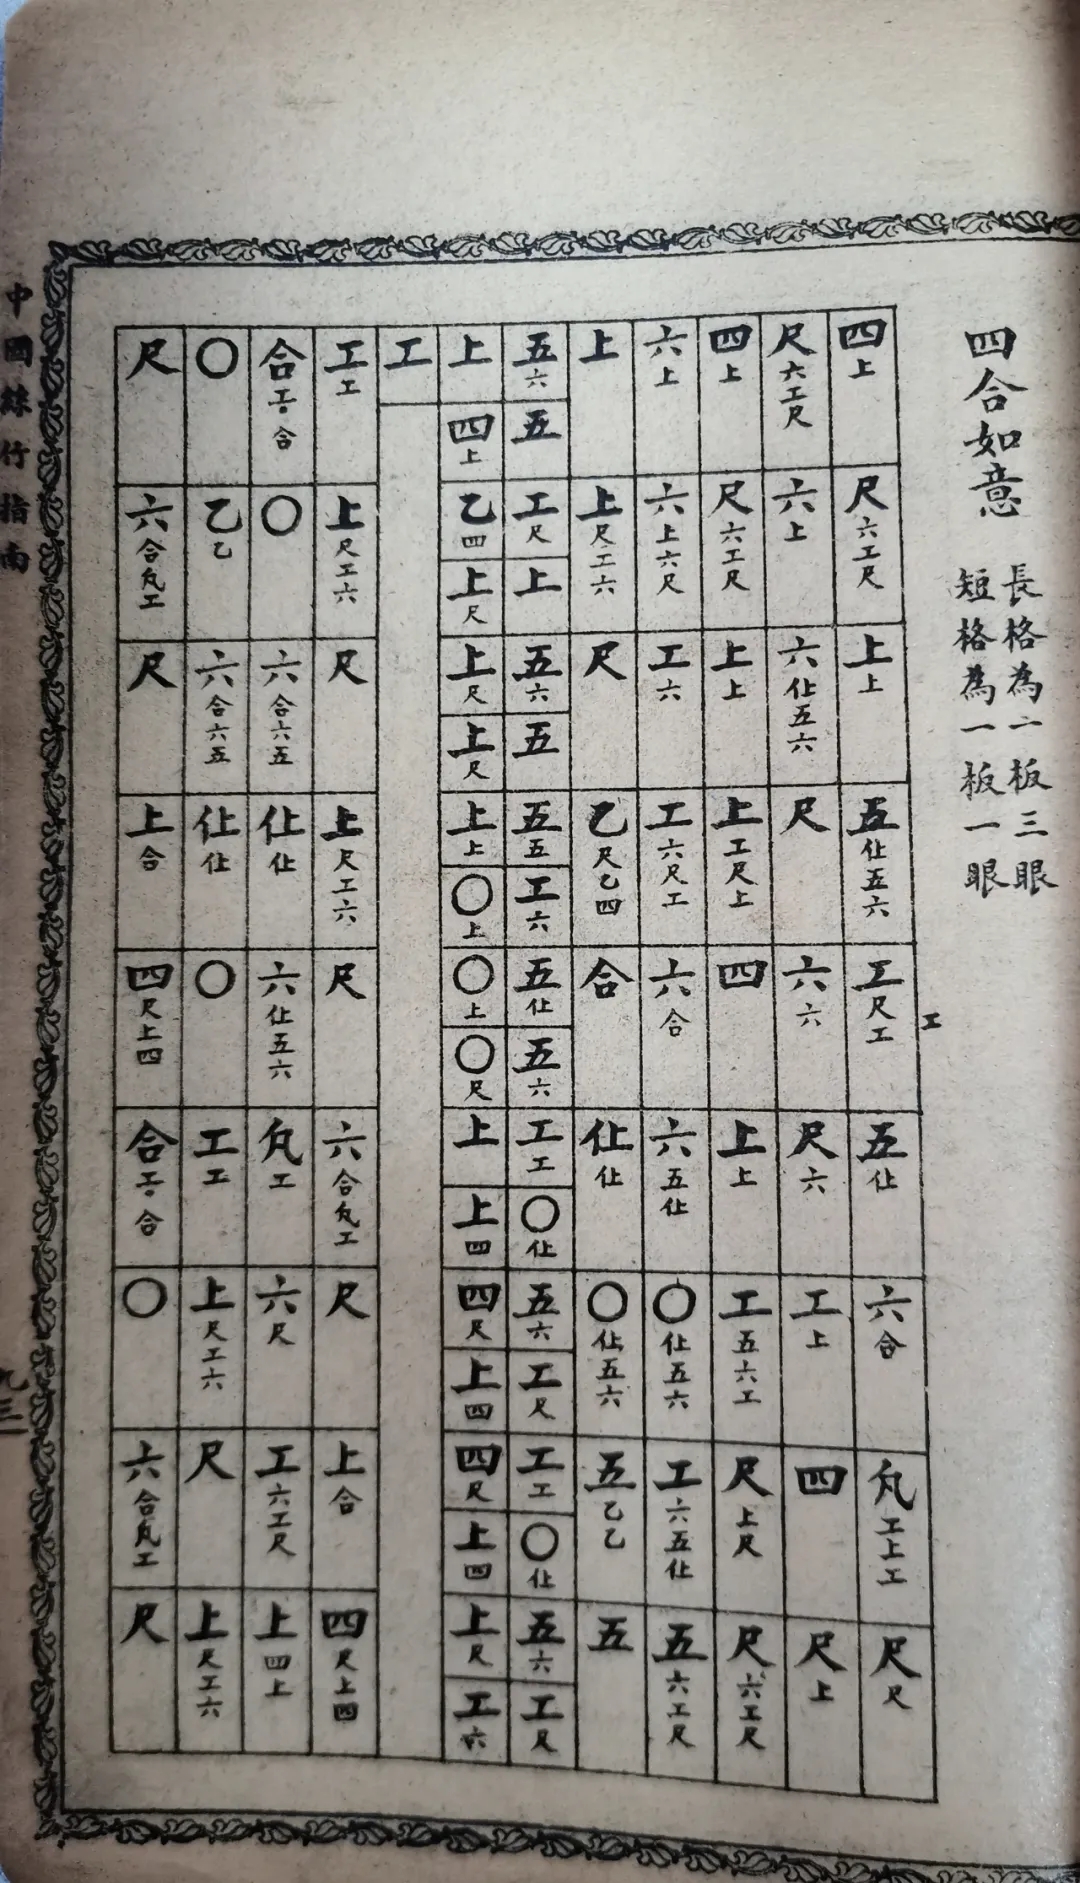 四合如意
長格為一板三眼
短格為一板一眼
工
四上 尺六工尺 上上 五仩五六 工尺工 五仩 六合 凡工上工 尺尺
尺六工尺 六上 六仩五六 尺 六六 尺六 工上 四 尺上
四上 尺六工尺 上上 上工尺上 四 上上 工五六工 尺上尺 尺六工尺
六上 六上六尺 工六 工六尺工 六合 六五仩 〇仩五六 工六五仩 五六工尺
上 上尺工六 尺 乙尺乙四 合 仩仩 〇仩五六 五乙乙 五
五六 五 工尺 上 五六 五 五五 工六 五仩 五六 工工 〇仩 五六 工尺 工工 〇仩 五六 工尺
上 四上 乙四 上尺 上尺 上尺 上上 〇上 〇上 〇尺 上 上四 四尺 上四 四尺 上四 上尺 工六
工
工工 上尺工六 尺 上尺工六 尺 六合凡工 尺 上合 四尺上四
合工合 〇 六合六五 仩仩 六仩五六 凡工 六尺 工六工尺 上四上
〇 乙乙 六合六五 仩仩 〇 工工 上尺工六 尺 上尺工六
尺 六合凡工 尺 上合 四尺上四 合工合 〇 六合凡工 尺
中國絲竹指南